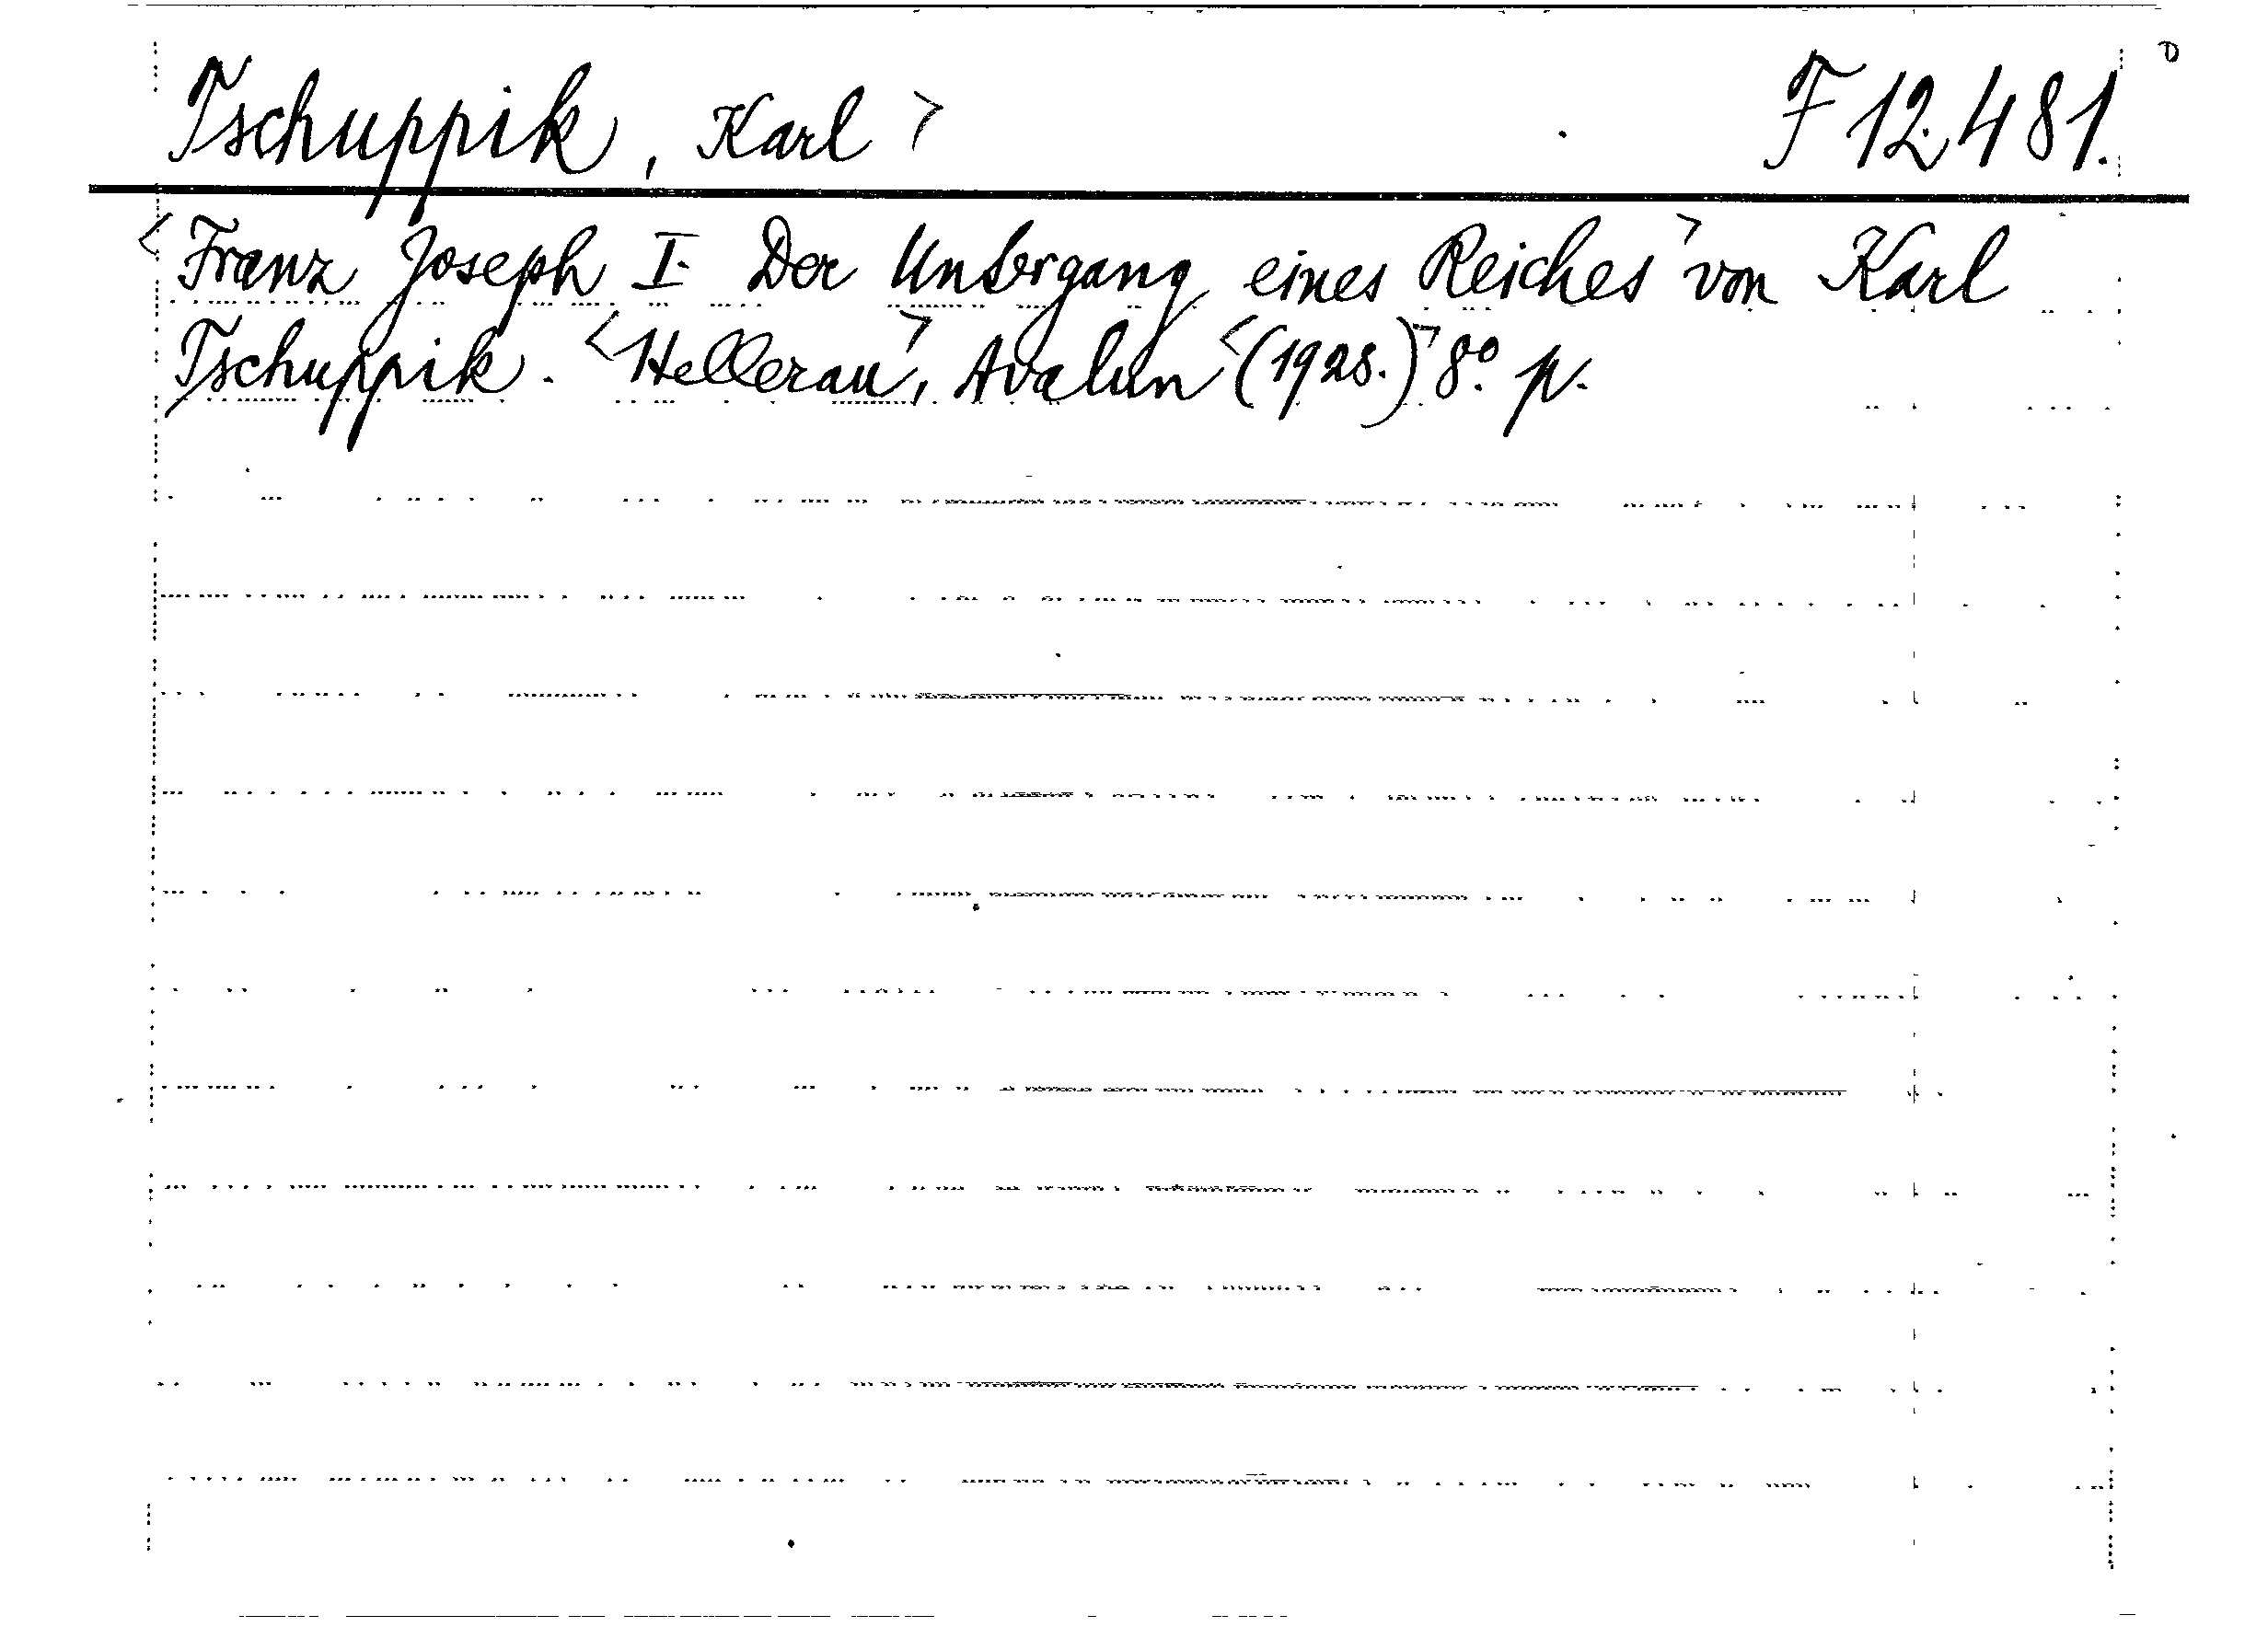 Tschuppik, Karl > F 12.481.
<Franz Joseph I. Der Untergang eines Reiches> von Karl
Tschuppik. <Hellerau>, Avalun <(1928.)> 8º. p.